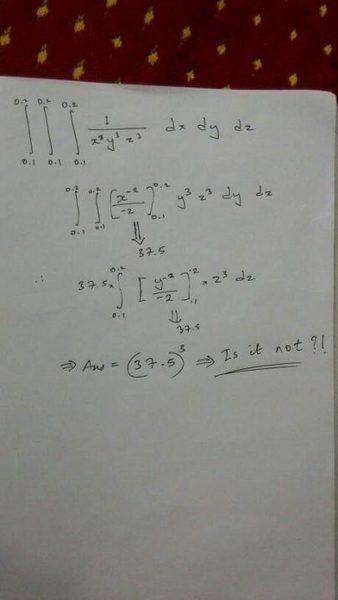 ∫_{0.1}^{0.2} ∫_{0.1}^{0.2} ∫_{0.1}^{0.2} 1/(x³y³z³) dx dy dz
∫_{0.1}^{0.2} ∫_{0.1}^{0.2} [x⁻²/-2]_{0.1}^{0.2} y³ z³ dy dz
⇓
37.5
∴ 37.5 × ∫_{0.1}^{0.2} [y⁻²/-2]_{.1}^{.2} × z³ dz
⇓
37.5
⇒ Ans = (37.5)³ ⇒ Is it not?!